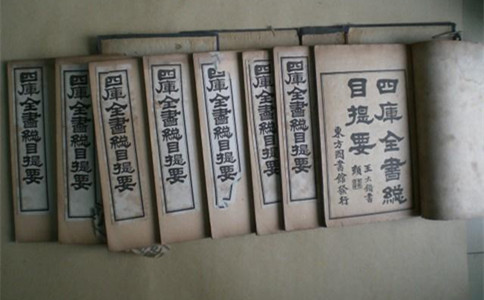 四庫全書總
目提要
東方圖書館發行
四庫全書總目提要
四庫全書總目提要
四庫全書總目提要
四庫全書總目提要
四庫全書總目提要
四庫全書總目提要
四庫全書總目提要